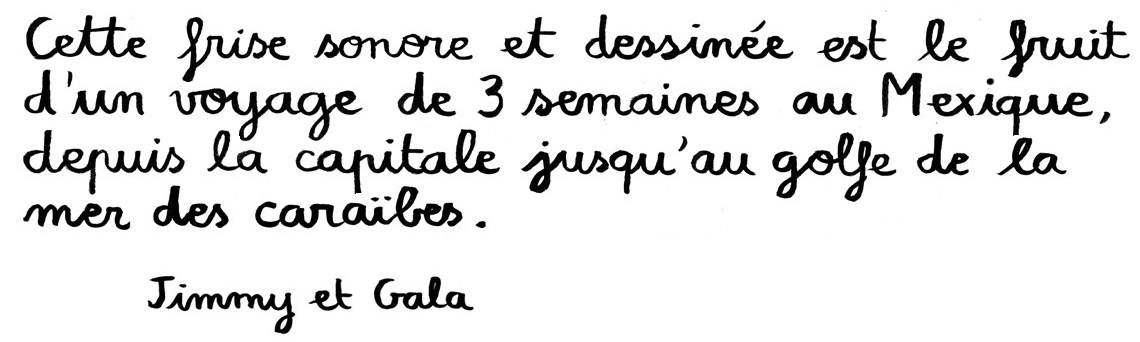 Cette frise sonore et dessinée est le fruit
d'un voyage de 3 semaines au Mexique,
depuis la capitale jusqu'au golfe de la
mer des caraïbes.
Jimmy et Gala